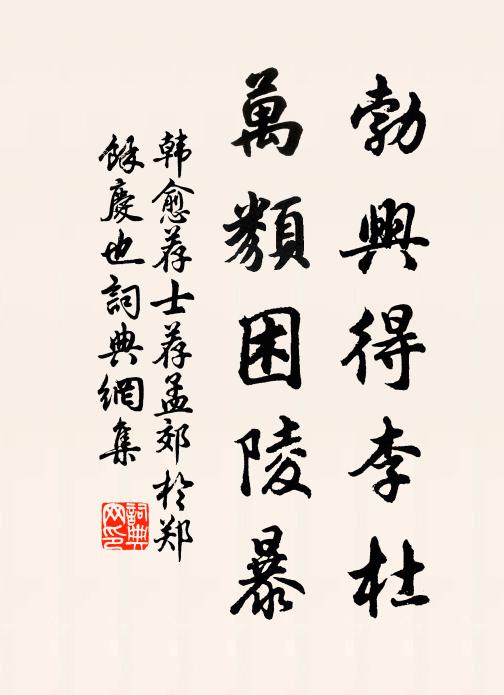 勃興得李杜
萬類困陵暴
韩愈荐士荐孟郊於郑
餘慶也詞典網集
詞典
网印